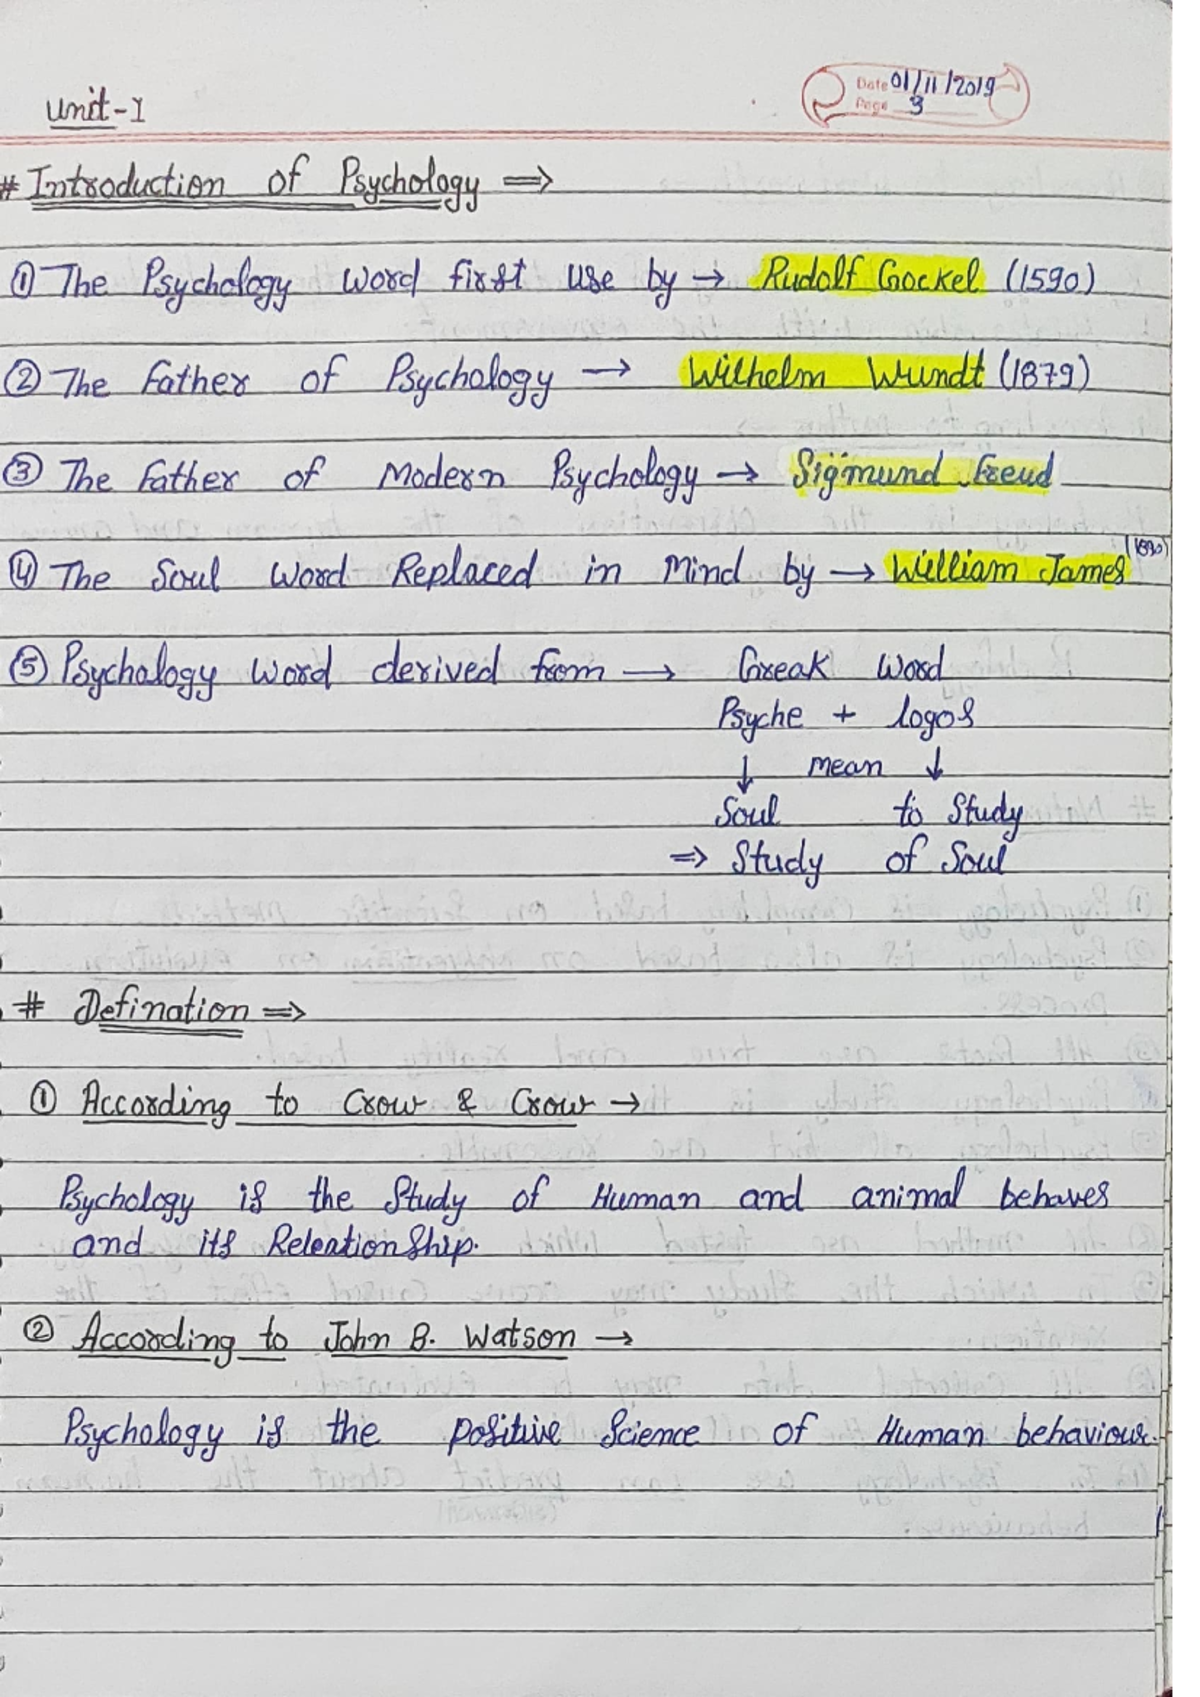 Unit-I
Date 01/11/2019
Page 3
# Introduction of Psychology ⇒
① The Psychology word first use by → Rudolf Gockel (1590)
② The Father of Psychology → Wilhelm Wundt (1879)
③ The Father of Modern Psychology → Sigmund Freud
④ The Soul Word Replaced in Mind by → William James (1890)
⑤ Psychology Word derived from → Greak Word
Psyche + logos
↓ mean ↓
Soul to Study
⇒ Study of Soul
# Defination ⇒
① According to Crow & Crow →
Psychology is the Study of Human and animal behaves
and its Releationship.
② According to John B. Watson →
Psychology is the positive Science of Human behaviour.